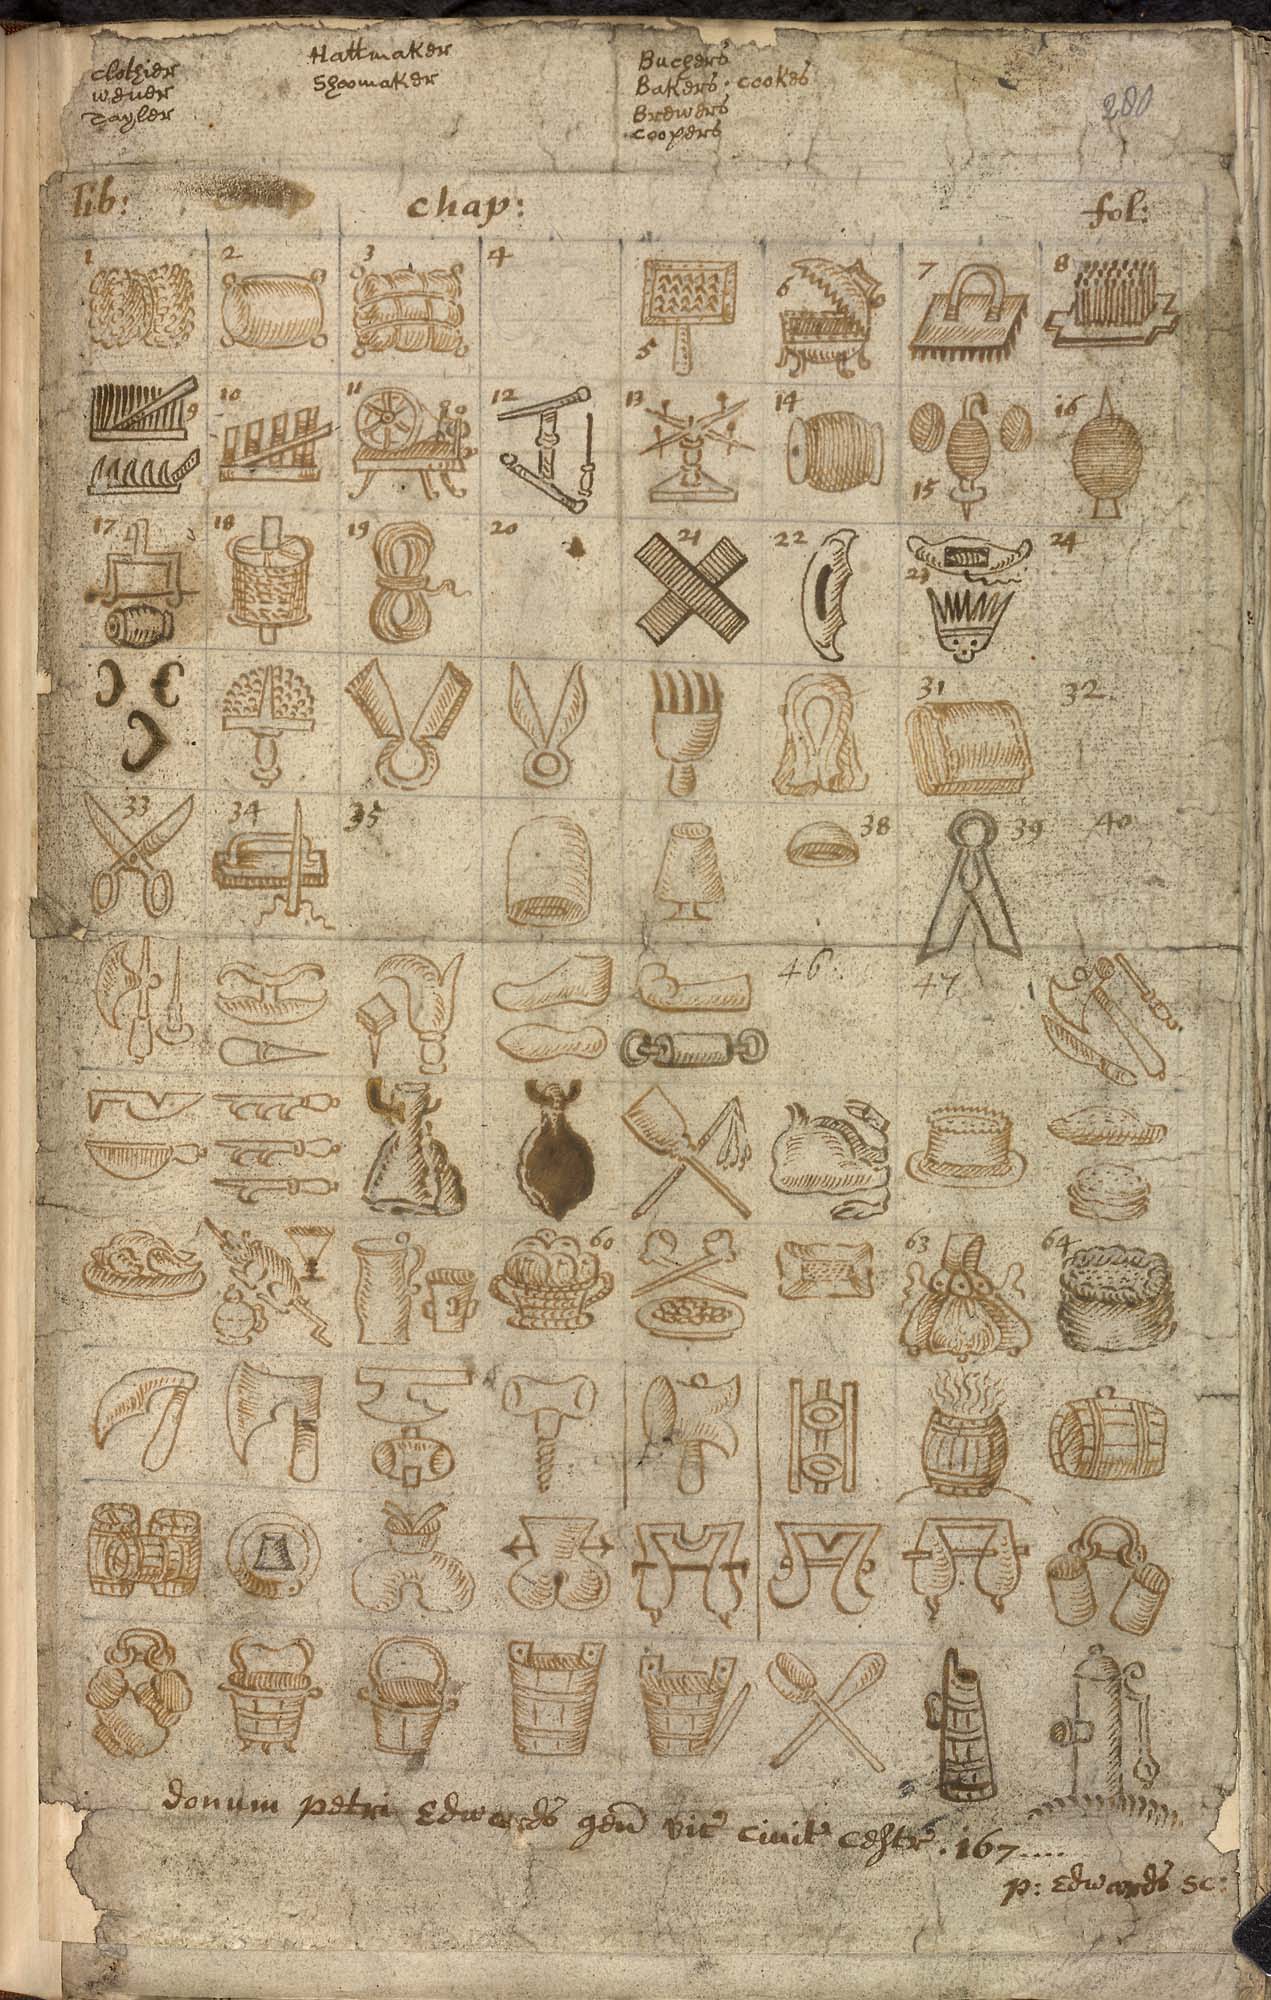 Clothier
wever
Tayler
Hattmaker
Shoomaker
Buchers
Bakers · Cookes
Brewers
Coopers
280
Lib:
chap:
fol:
1 2 3 4 5 6 7 8
9 10 11 12 13 14 15 16
17 18 19 20 21 22 23 24
31 32
33 34 35 38 39 40
46: 47
60 63 64
donum petri Edwards gen̄ vic̄ civit Cestr̄ . 167....
p: Edwards sc: